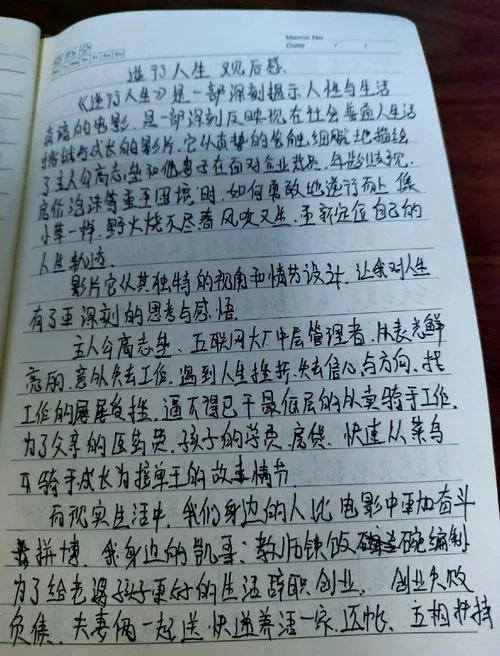 Memo No.
Date / /
逆行人生 观后感.
《逆行人生》是一部深刻揭示人性与生活
真谛的电影,是一部深刻反映现在社会普通人生活
挑战与成长的影片,它从真挚的 细腻地描绘
了主人公高志垒和他妻子在面对企业裁员、年龄歧视、
房价泡沫等重重困境时,如何勇敢地逆行而上,像
小草一样,野火烧不尽春风吹又生,重新定位自己的
人生轨迹.
影片它从其独特的视角和情节设计,让我对人生
有了更深刻的思考与感悟
主人公高志垒、互联网大厂中层管理者,从表光鲜
亮丽,意外失去工作,遇到人生挫折,失去信心与方向、找
工作的屡屡受挫,逼不得已干最低层的外卖骑手工作,
为了父亲的医药费,孩子的学费、房贷,快速从菜鸟
骑手成长为接单王的故事情节.
而现实生活中,我们身边的人比电影中更加奋斗
拼搏,我身边的凯哥:教师铁饭碗编制
为了给老婆孩子更好的生活辞职创业, 创业失败
负债,夫妻俩一起送快递养活一家、还帐、互相扶持